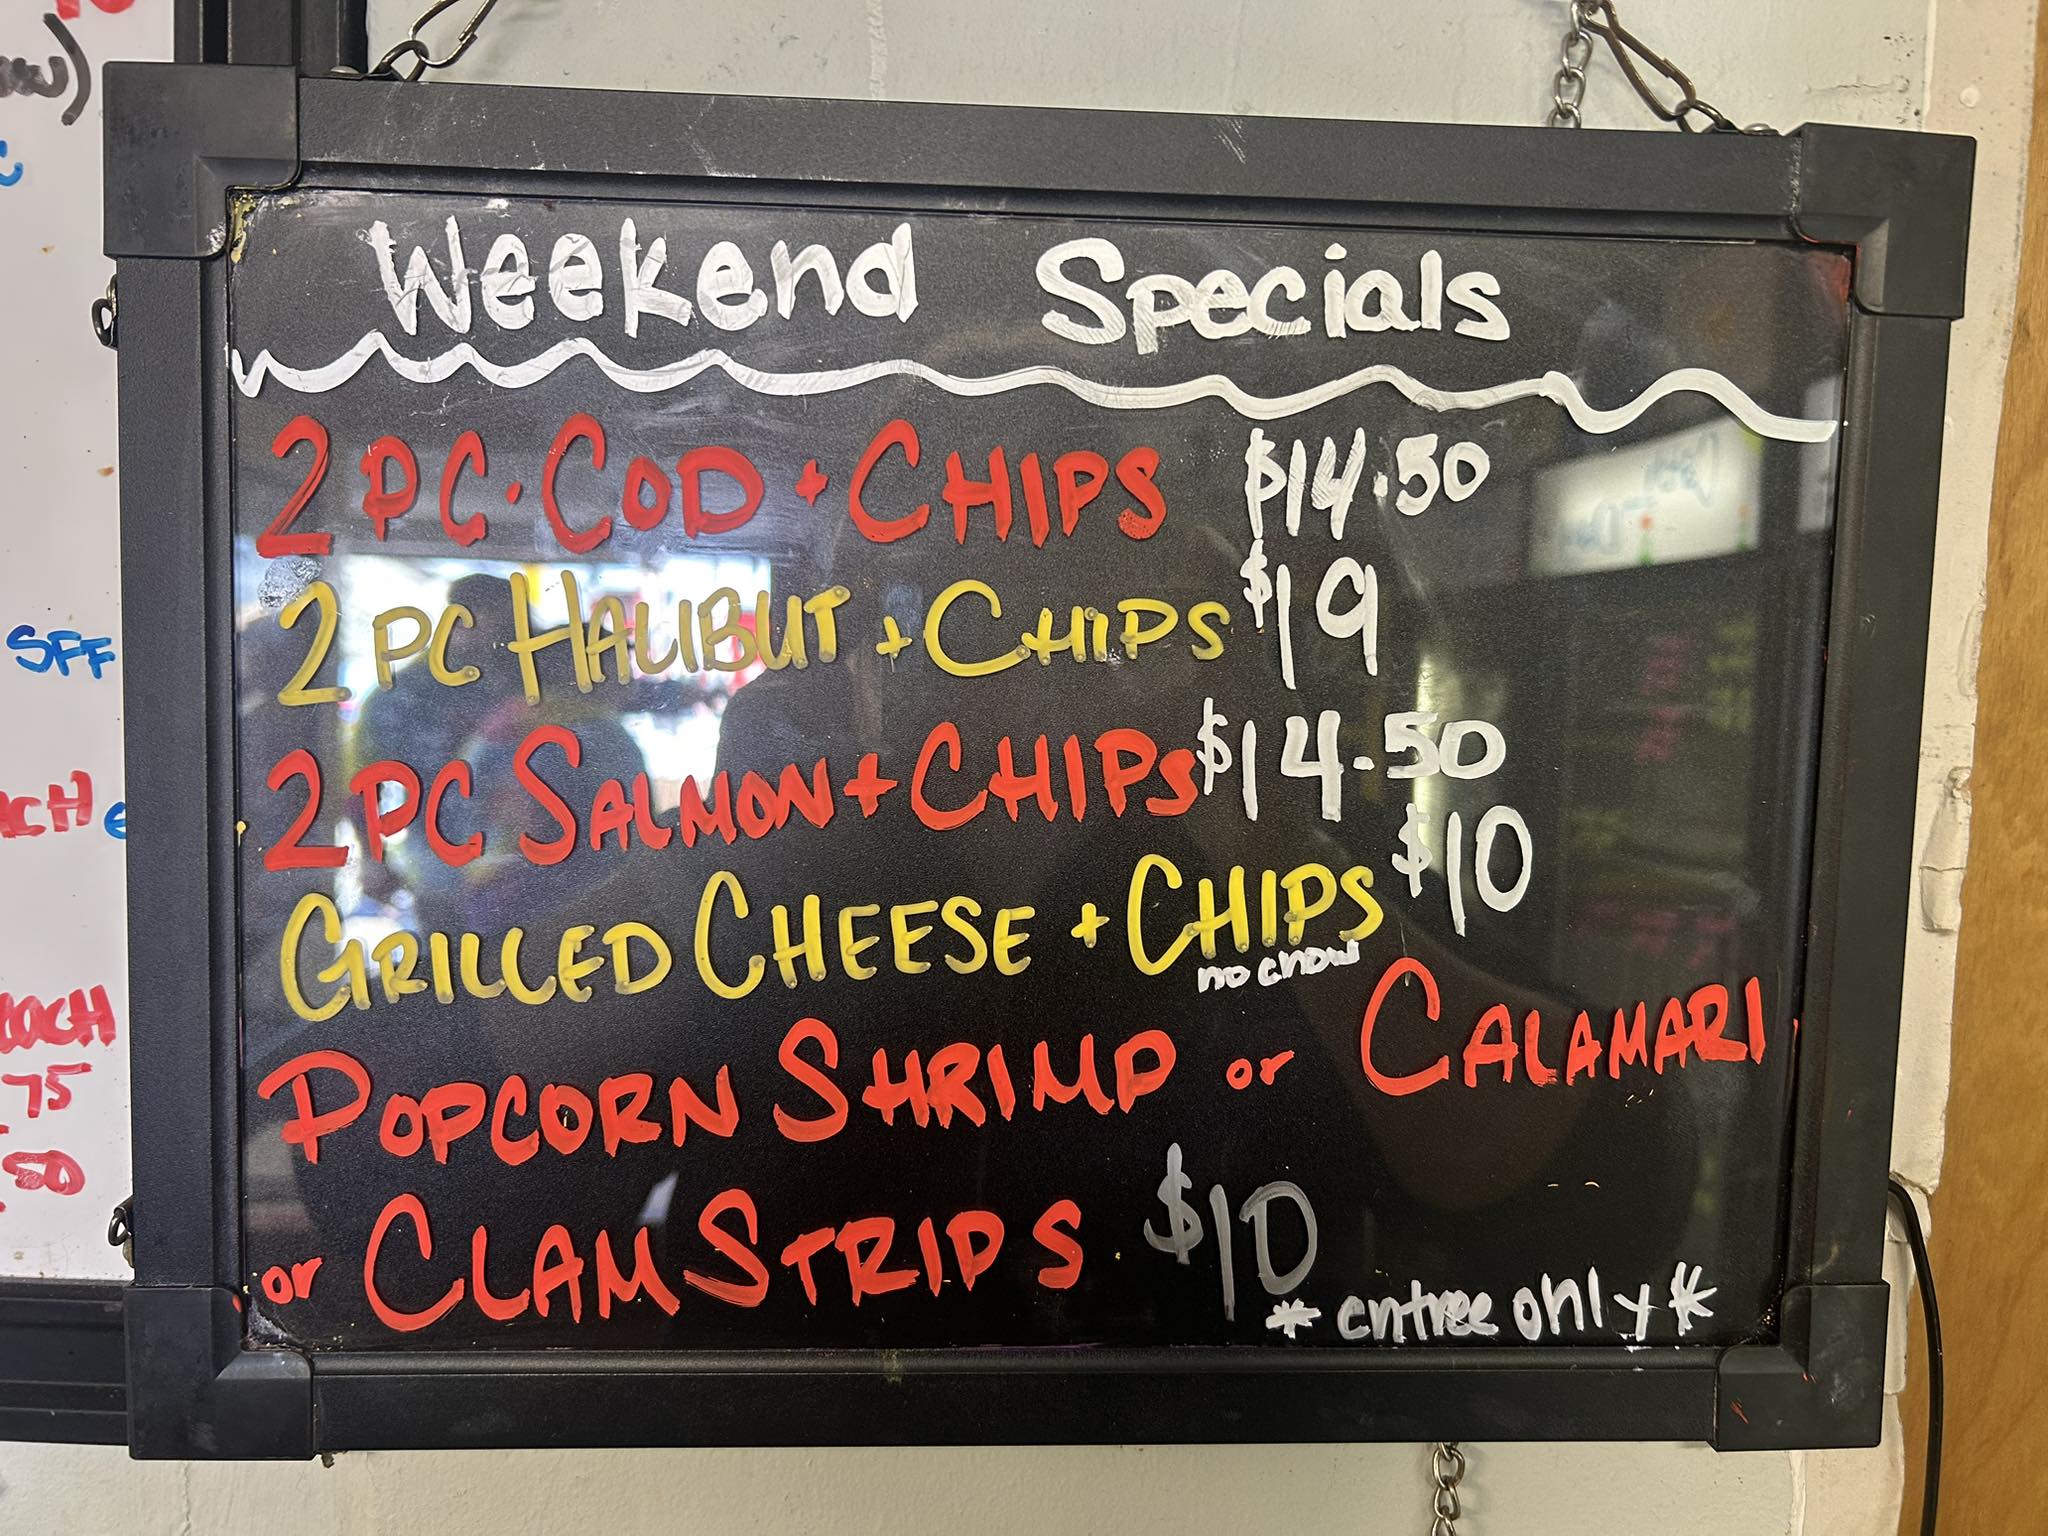 Weekend Specials
2 PC. COD + CHIPS $14.50
2 PC HALIBUT + CHIPS $19
2 PC SALMON + CHIPS $14.50
GRILLED CHEESE + CHIPS $10
no chow
POPCORN SHRIMP or CALAMARI
or CLAM STRIPS $10
* entree only *
SFF
75
50